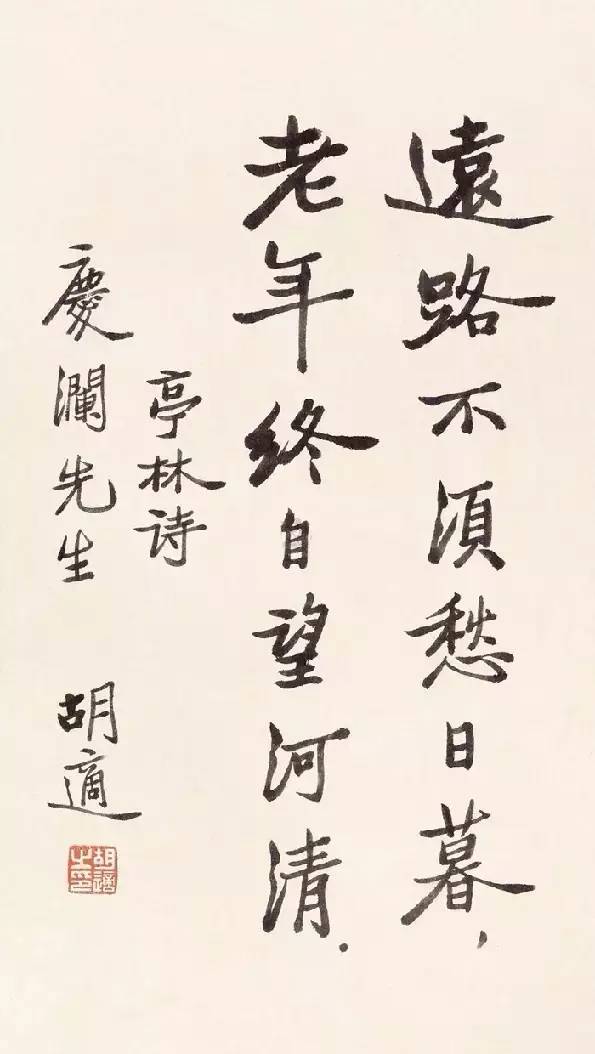 遠路不須愁日暮，
老年終自望河清．
亭林詩
慶瀾先生
胡適
胡適之印